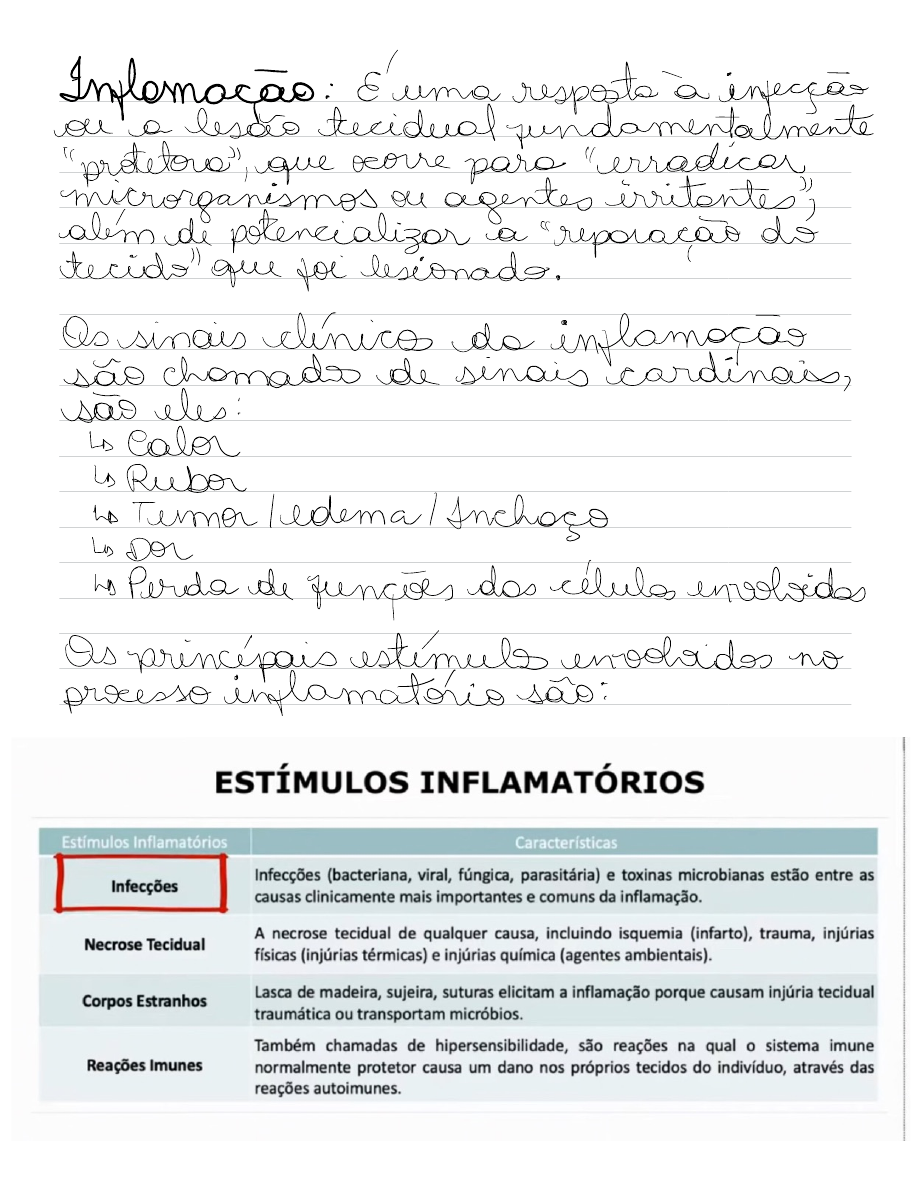 Inflamação: É uma resposta à infecção
ou a lesão tecidual fundamentalmente
"protetora", que ocorre para "erradicar
microrganismos ou agentes irritantes",
além de potencializar a "reparação do
tecido" que foi lesionado.
Os sinais clínicos da inflamação
são chamados de sinais cardinais,
são eles:
↳ Calor
↳ Rubor
↳ Tumor/edema/Inchaço
↳ Dor
↳ Perda de funções das células envolvidas
Os principais estímulos envolvidos no
processo inflamatório são:
ESTÍMULOS INFLAMATÓRIOS
Estímulos Inflamatórios Características
Infecções
Infecções (bacteriana, viral, fúngica, parasitária) e toxinas microbianas estão entre as
causas clinicamente mais importantes e comuns da inflamação.
Necrose Tecidual
A necrose tecidual de qualquer causa, incluindo isquemia (infarto), trauma, injúrias
físicas (injúrias térmicas) e injúrias química (agentes ambientais).
Corpos Estranhos
Lasca de madeira, sujeira, suturas elicitam a inflamação porque causam injúria tecidual
traumática ou transportam micróbios.
Reações Imunes
Também chamadas de hipersensibilidade, são reações na qual o sistema imune
normalmente protetor causa um dano nos próprios tecidos do indivíduo, através das
reações autoimunes.